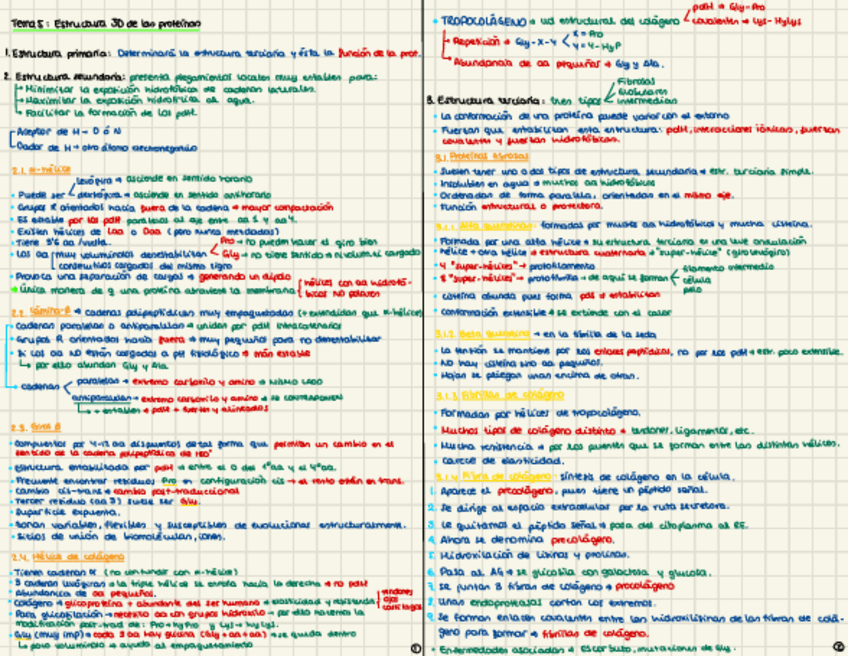 Tema 5: Estructura 3D de las proteínas
1. Estructura primaria: Determinará la estructura terciaria y ésta la función de la prot.
2. Estructura secundaria: presenta plegamientos locales muy estables para:
Minimitar la exposición hidrofóbica de cadenas laterales.
Maximitar la exposición hidrofílica al agua.
Facilitar la formación de los pdH.
Aceptor de H → O ó N
Dador de H → otro átomo electronegativo
2.1. α-hélice
levógira → asciende en sentido horario
• Puede ser dextrógira → asciende en sentido antihorario
• Grupos R orientados hacia fuera de la cadena → mayor compactación
• Es estable por los pdH paralelos al eje entre aa 1 y aa 4.
• Existen hélices de Laa o Daa (pero nunca mezcladas)
• Tiene 3'6 aa /vuelta.
Pro → no pueden hacer el giro bien
• Los aa muy voluminosos desestabilizan Gly → no tiene sentido → ni volum. ni cargado
consecutivos cargados del mismo signo
• Provoca una separación de cargas → generando un dipolo
• Única manera de q una proteína atraviese la membrana hélices con aa hidrofóbicos NO polares
2.2. Lámina-β → cadenas polipeptídicas muy empaquetadas (+ extendidas que α-hélice)
• cadenas paralelas o antiparalelas → unidas por pdH intercatenarios
• Grupos R orientados hacia fuera → muy pequeños para no desestabilizar
• Si los aa NO están cargados a pH fisiológico → más estable
↳ por ello abundan Gly y Ala.
paralelas → extremo carbonilo y amino → MISMO LADO
• cadenas
antiparalelas → extremo carbonilo y amino → SE CONTRAPONEN
↳ + estables → pdH + fuertes y alineados
2.3. Giros β
• compuestos por 4-12 aa dispuestos de tal forma que permiten un cambio en el
sentido de la cadena polipeptídica de 180°
• Estructura estabilizada por pdH → entre el O del 1º aa y el 4º aa.
• Frecuente encontrar residuos Pro en configuración cis → el resto están en trans.
• cambio cis-trans → cambio post-traduccional
• Tercer residuo (aa 3) suele ser Gly.
• Superficie expuesta.
• Zonas variables, flexibles y susceptibles de evolucionar estructuralmente.
• Sitios de unión de biomoléculas, iones.
2.4. Hélice de colágeno
• Tienen cadenas α (no confundir con α-hélice)
• 3 cadenas levógiras → la triple hélice se enrolla hacia la derecha → no pdH
• Abundancia de aa pequeños.
• Colágeno → glicoproteína + abundante del ser humano → elasticidad y resistencia tendones ojos cartílagos
• Para glicosilación → necesito aa con grupos hidroxilo → por ello hacemos la
modificación post-trad de: Pro → HyPro y Lys → HyLys.
• Gly (muy imp) → cada 3 aa hay glicina (Gly + aa + aa) → se queda dentro
↳ poco voluminoso → ayuda al empaquetamiento
①
• TROPOCOLÁGENO → ud estructural del colágeno pdH → Gly-Pro
covalentes → Lys-HyLys
Repetición → Gly-X-Y X = Pro
Y = 4-HyP
Abundancia de aa pequeños → Gly y Ala.
Fibrosas
Globulares
3. Estructura terciaria: tres tipos Intermedias
• La conformación de una proteína puede variar con el entorno
• Fuerzas que estabilizan esta estructura: pdH, interacciones iónicas, fuerzas
covalentes y fuerzas hidrofóbicas.
3.1. Proteínas fibrosas
• Suelen tener uno o dos tipos de estructura secundaria → estr. terciaria simple.
• Insolubles en agua → muchos aa hidrofóbicos
• Ordenadas de forma paralela, orientadas en el mismo eje.
• Función estructural o protectora.
3.1.1. Alfa queratina: formadas por muchos aa hidrofóbicos y mucha cisteína.
• Formada por una alfa hélice → su estructura terciaria es una leve ondulación
• hélice + otra hélice → estructura cuaternaria → "super-hélice" (giro levógiro)
• 4 "super-hélices" → protofilamento
• 8 "super-hélices" → protofibrilla → de aquí se forman filamento intermedio
célula
pelo
• cisteína abunda pues forma pdS → estabilizan
• conformación extensible → se extiende con el calor
3.1.2. Beta queratina → en la fibrilla de la seda
• La tensión se mantiene por los enlaces peptídicos, no por los pdH → estr. poco extensible.
• No hay cisteína sino aa pequeños.
• Hojas se pliegan unas encima de otras.
3.1.3. Fibrillas de colágeno
• Formadas por hélices de tropocolágeno.
• Muchos tipos de colágeno distinto → tendones, ligamentos, etc.
• Mucha resistencia → por los puentes que se forman entre las distintas hélices.
• carece de elasticidad.
3.1.4. Fibra de colágeno: síntesis de colágeno en la célula.
1. Aparece el precolágeno, pues tiene un péptido señal.
2. Se dirige al espacio extracelular por la ruta secretora.
3. Le quitamos el péptido señal → pasa del citoplasma al RE.
4. Ahora se denomina procolágeno.
5. Hidroxilación de lisinas y prolinas.
6. Pasa al AG → se glicosila con galactosa y glucosa.
7. Se juntan 3 fibras de colágeno → procolágeno
8. Unas endoproteasas cortan los extremos.
9. Se forman enlaces covalentes entre las hidroxilisinas de las fibras de colá-
geno para formar → fibrillas de colágeno.
• Enfermedades asociadas → Escorbuto, mutaciones de Gly.
②